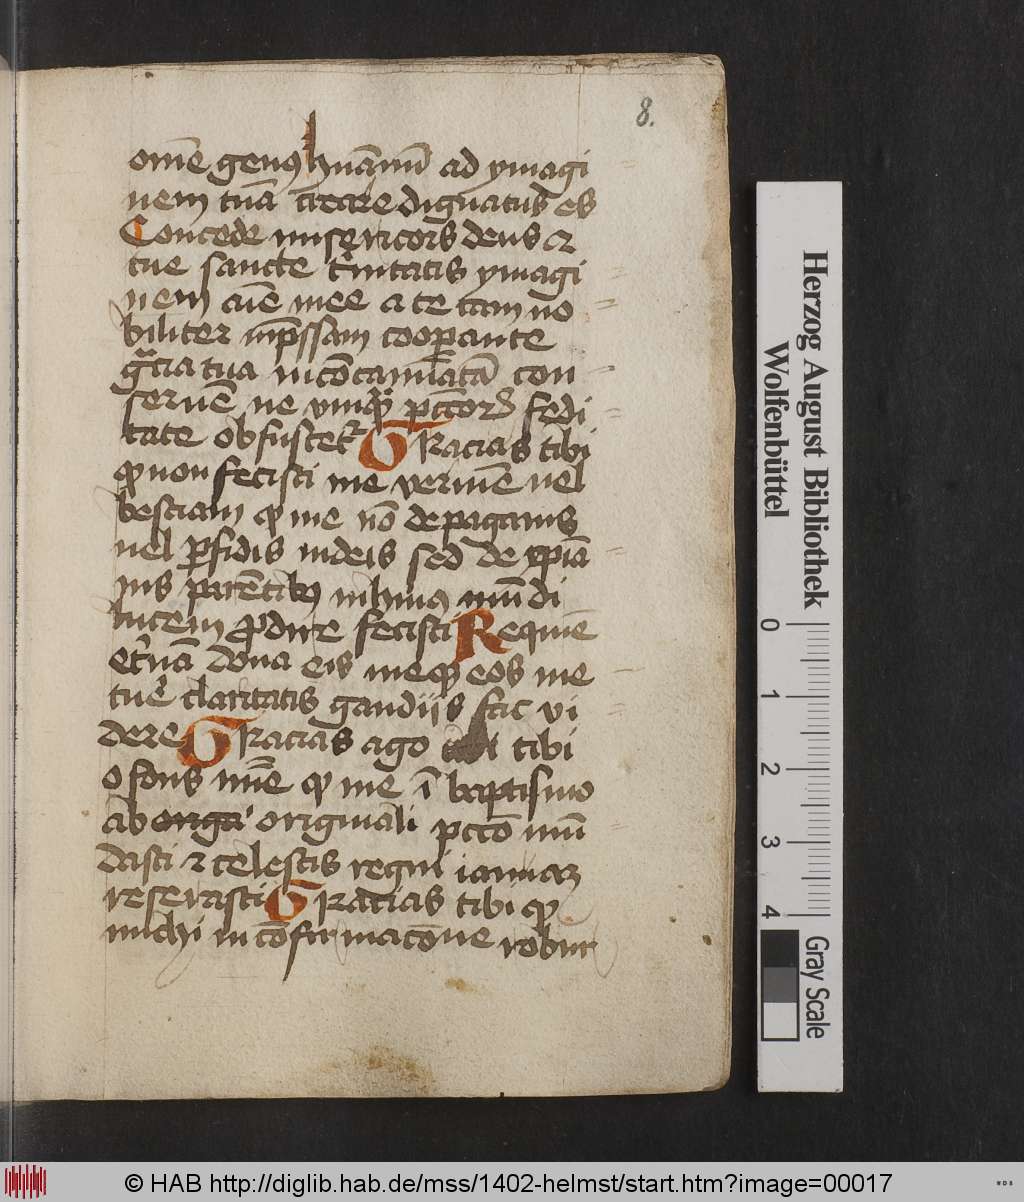 8.
om̄e genꝰ hūanū ad ymagi
nem tuā creare dignatus es
Concede misericors deus ⁊
tue sancte t'nitatis ymagi
nem aīe mee a te tam no
biliter imp̄ssam coop̄ante
gr̄acia tua incōtaminatā con
seruē ne vmqᷓ pcc̄oꝝ fedi
tate obfuscetᷣ Gracias tibi
ꝙ non fecisti me vermē uel
bestiam ꝙ me nō de paganis
uel ꝑfidis iudeis sed de xp̄ia
nis parētibꝰ in huiꝰ mūdi
lucem ꝓdire fecisti Requiē
et'nā dona eis meqꝫ eos me
tue claritatis gaudijs fac vi
dere Gracias ago tibi
o fons mīe ꝙ me ī baptismo
ab originali pcc̄o mū
dasti ⁊ celestis regni ianuaꝫ
reserasti Gracias tibi ꝙ
michi in cōfirmacōne robur
Herzog August Bibliothek
Wolfenbüttel
0 1 2 3 4
Gray Scale
© HAB http://diglib.hab.de/mss/1402-helmst/start.htm?image=00017